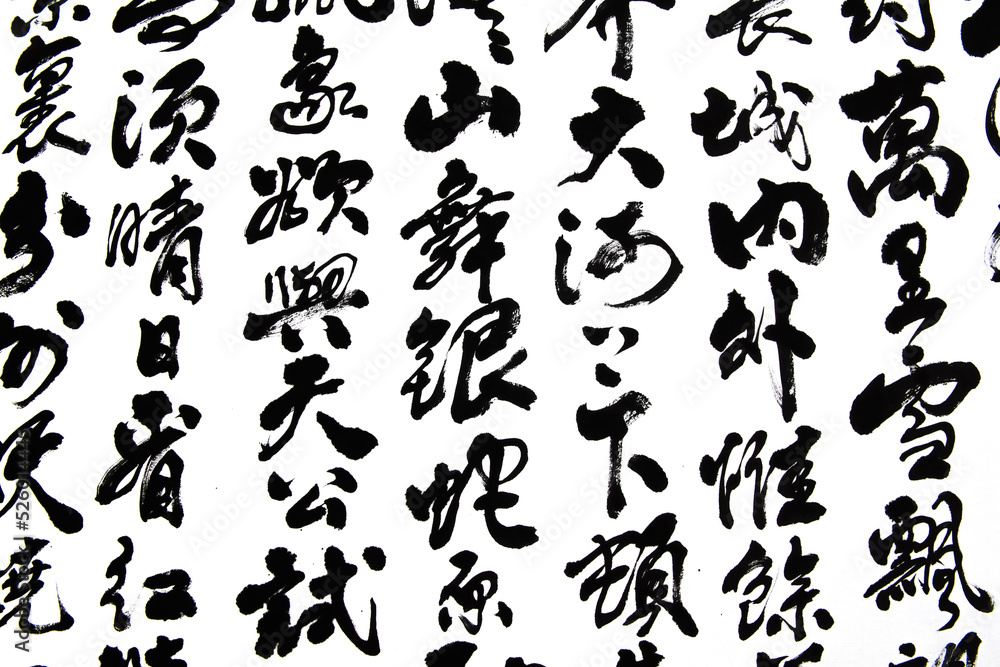 封萬里雪飄
長城内外惟餘
大河上下頓
山舞銀蛇原
象欲與天公試
須晴日看紅
裹分外妖嬈
Adobe Stock